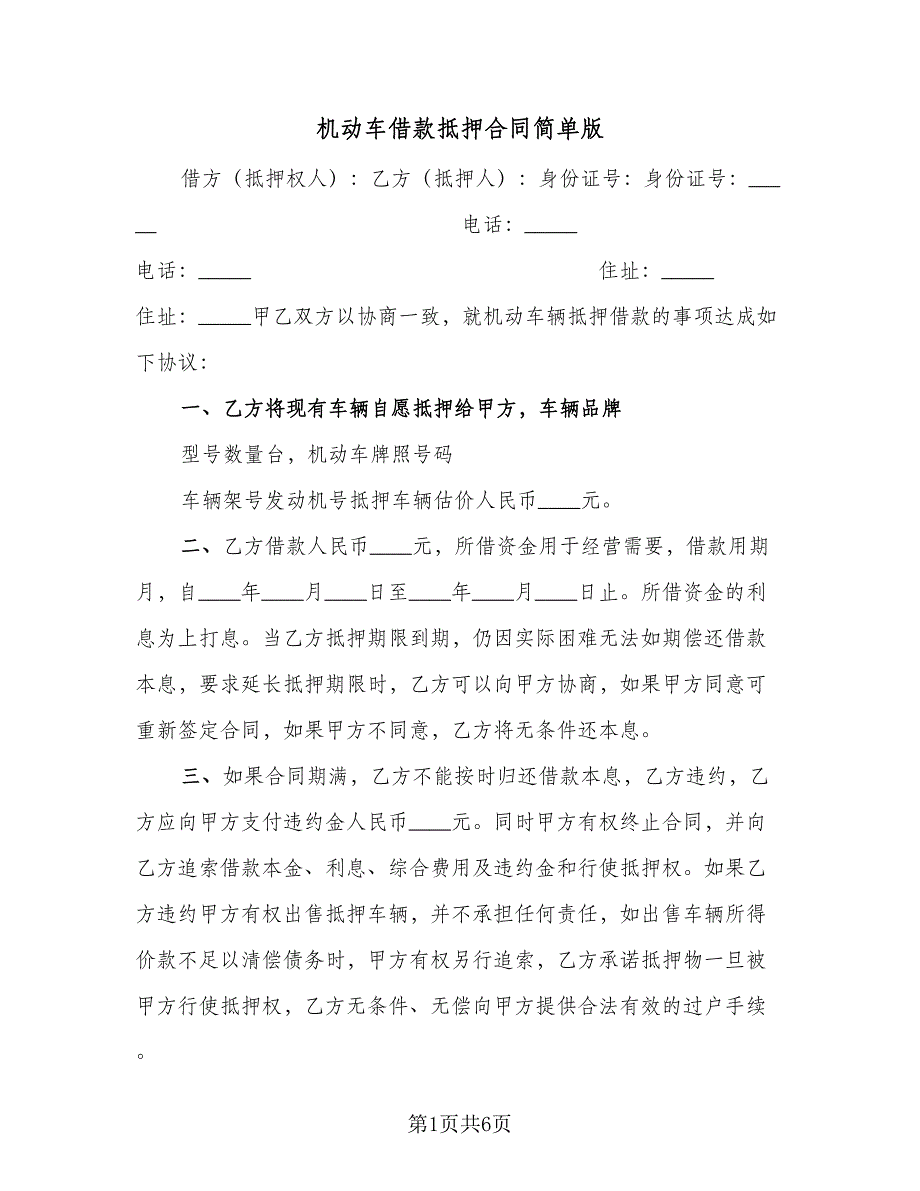 机动车借款抵押合同简单版
借方（抵押权人）：乙方（抵押人）：身份证号：身份证号：___
__ 电话：_____
电话：_____ 住址：_____
住址：_____甲乙双方以协商一致，就机动车辆抵押借款的事项达成如
下协议：
一、乙方将现有车辆自愿抵押给甲方，车辆品牌
型号数量台，机动车牌照号码
车辆架号发动机号抵押车辆估价人民币____元。
二、乙方借款人民币____元，所借资金用于经营需要，借款用期
月，自____年____月____日至____年____月____日止。所借资金的利
息为上打息。当乙方抵押期限到期，仍因实际困难无法如期偿还借款
本息，要求延长抵押期限时，乙方可以向甲方协商，如果甲方同意可
重新签定合同，如果甲方不同意，乙方将无条件还本息。
三、如果合同期满，乙方不能按时归还借款本息，乙方违约，乙
方应向甲方支付违约金人民币____元。同时甲方有权终止合同，并向
乙方追索借款本金、利息、综合费用及违约金和行使抵押权。如果乙
方违约甲方有权出售抵押车辆，并不承担任何责任，如出售车辆所得
价款不足以清偿债务时，甲方有权另行追索，乙方承诺抵押物一旦被
甲方行使抵押权，乙方无条件、无偿向甲方提供合法有效的过户手续
。
第1页共6页